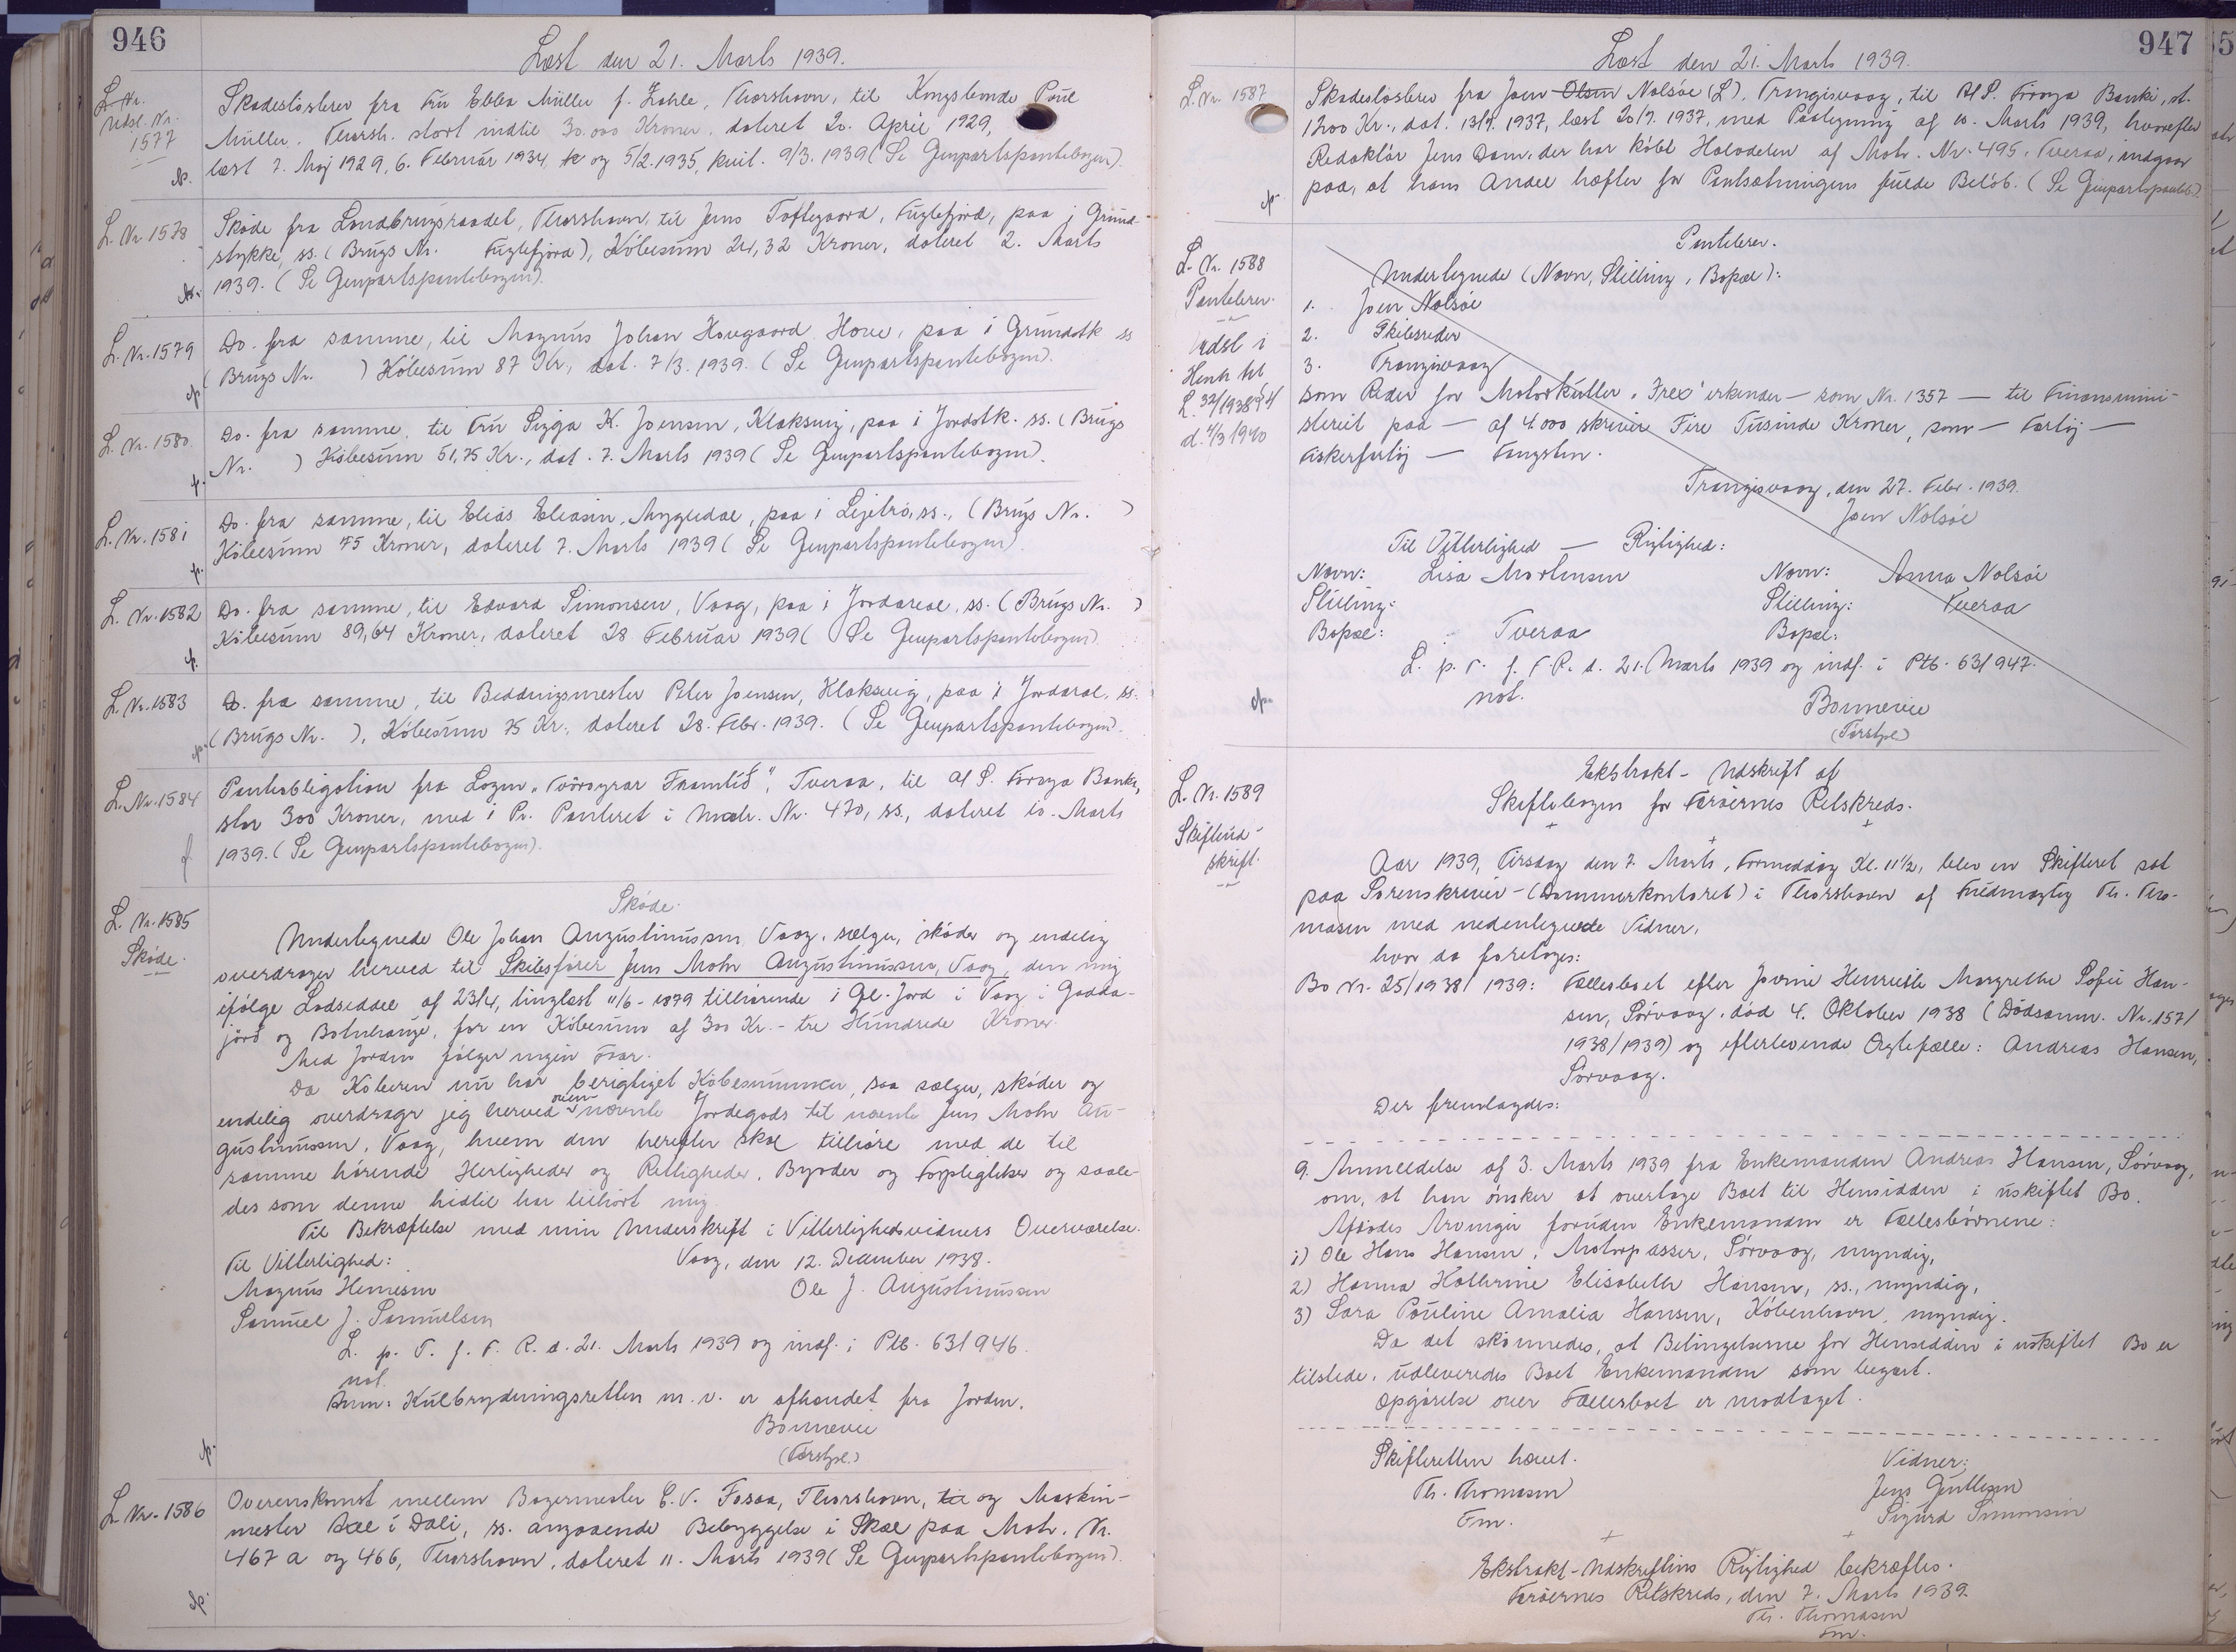 946
Læst den 21. Marts 1939.
L. Nr.
Udsl. Nr.
1577
Skadesløsbrev fra Fru Ebba Müller f. Zahle, Thorshavn, til Kongsbonde Poul
Müller, Thorsh. stort indtil 30.000 Kroner, dateret 20. April 1929,
læst 7. Maj 1929, 6. Februar 1934, og 5/2.1935, kvit. 9/3.1939 (Se Genpartspantebogen).
L. Nr 1578
Skøde fra Landbrugsraadet, Thorshavn, til Jens Toftegaard, Fuglefjord, paa 1 Grund-
stykke, ss. (Brugs Nr. Fuglefjord), Købesum 24,32 Kroner, dateret 2. Marts
1939. (Se Genpartspantebogen).
L. Nr. 1579
Do. fra samme, til Magnus Johan Hovgaard Hove, paa 1 Grundstk ss
(Brugs Nr. ) Købesum 87 Kr., dat. 7/3.1939. (Se Genpartspantebogen).
L. Nr. 1580.
Do. fra samme, til Fru Sigga K. Joensen, Klaksvig, paa 1 Jordstk. ss. (Brugs
Nr. ) Købesum 51,75 Kr., dat. 7. Marts 1939 (Se Genpartspantebogen).
L. Nr. 1581
Do. fra samme, til Elias Eliasen, Mygledal, paa 1 ss., (Brugs Nr. )
Købesum 75 Kroner, dateret 7. Marts 1939 (Se Genpartspantebogen).
L. Nr. 1582
Do. fra samme, til Edvard Simonsen, Vaag, paa 1 Jordareal, ss. (Brugs Nr. )
Købesum 89,64 Kroner, dateret 28 Februar 1939 (Se Genpartspantebogen).
L. Nr. 1583
Do. fra samme, til Beddingsmester Peter Joensen, Klaksvig, paa 1 Jordareal, ss.
(Brugs Nr. ), Købesum 75 Kr., dateret 28. Febr. 1939. (Se Genpartspantebogen).
L. Nr. 1584
Panteobligation fra Logen "Føroyrar Framtíð", Tveraa, til A/S. Føroya Banki,
stor 300 Kroner, med 1 Pr. Panteret i Matr. Nr. 470, ss., dateret 10. Marts
1939. (Se Genpartspantebogen).
L. Nr. 1585
Skøde.
Skøde.
Undertegnede Ole Johan Augustinussen, Vaag, sælger, skøder og endelig
overdrager herved til Skibsfører Jens Mohr Augustinussen, Vaag, den mig
ifølge Lodseddel af 23/4, tinglæst 11/6-1879 tilhørende 1 Gl. Jord i Vaag i Gadda-
jørð og Botnhauge, for en Købesum af 300 Kr. - tre Hundrede Kroner.
Med Jorden følger ingen Faar.
Da Køberen nu har berigtiget Købesummen, saa sælger, skøder og
endelig overdrager jeg herved ovennævnte Jordegods til nævnte Jens Mohr Au-
gustinussen, Vaag, hvem den herefter skal tilhøre med de til
samme hørende Herligheder og Rettigheder, Byrder og Forpligtelser og saale-
des som denne hidtil har tilhørt mig.
Til Bekræftelse med min Underskrift i Vitterlighedsvidners Overværelse.
Til Vitterlighed: Vaag, den 12. December 1938.
Magnus Hemesen Ole J. Augustinussen
Samuel J. Samuelsen
L. p. T. f. F. R. d. 21. Marts 1939 og indf. i Ptb. 63/946.
not.
Anm: Kulbrydningsretten m. v. er afhændet fra Jorden.
Bonnevie
(Førstpl.)
L. Nr. 1586
Overenskomst mellem Bagermester C. V. Fosaa, Thorshavn, til og Maskin-
mester í Dali, ss. angaaende Bebyggelse i Skel paa Matr. Nr.
467 a og 466, Thorshavn, dateret 11. Marts 1939 (Se Genpartspantebogen).
947
Læst den 21. Marts 1939.
L. Nr. 1587
Skadesløsbrev fra Joen Olsen Nolsøe (L), Trangisvaag, til A/S. Føroya Banki, st.
1200 Kr., dat. 13/9. 1937, læst 20/9. 1937, med Paategning af 10. Marts 1939, hvorefter
Redaktør Jens Dam, der har købt Halvdelen af Matr. Nr. 495, Tveraa, indgaar
paa, at hans Andel hæfter for Pantsætningens fulde Beløb. (Se Genpartspanteb.)
L. Nr. 1588
Pantebrev.
Udsl i
L. 32/1938
d. 4/3 1940
Pantebrev.
Undertegnede (Navn, Stilling, Bopæl):
1. Joen Nolsøe
2. Skibsreder
3. Trangisvaag
som Reder for Motorkutter "Frex" erkender - som Nr. 1357 - til Finansmini-
steriet paa - af 4000 skriver Fire Tusinde Kroner, som - Fartøj -
Fiskerfartøj - Fangsten.
Trangisvaag, den 27. Febr. 1939.
Joen Nolsøe
Til Vitterlighed - Rigtighed:
Navn: Lisa Mortensen Navn: Anna Nolsøe
Stilling: Stilling: Tveraa
Bopæl: Tveraa Bopæl:
L. p. T. f. F. R. d. 21. Marts 1939 og indf. i Ptb. 63/947.
not.
Bonnevie
(Førstpl.)
L. Nr. 1589
Skifteud-
skrift.
Ekstrakt-Udskrift af
Skiftebogen for Færøernes Retskreds.
Aar 1939, Tirsdag den 7. Marts, Formiddag Kl. 11 1/2, blev en Skifteret sat
paa Sorenskriver-(Dommerkontoret) i Thorshavn af Fuldmægtig Th. Tho-
masen med nedentegnede Vidner,
hvor da foretoges:
Bo Nr. 25/1938/1939: Fællesboet efter Jovine Henriette Margrethe Sofie Han-
sen, Sørvaag, død 4. Oktober 1938 (Dødsanm. Nr. 157/
1938/1939) og efterlevende Ægtefælle: Andreas Hansen,
Sørvaag.
Der fremlagdes:
9. Anmeldelse af 3. Marts 1939 fra Enkemanden Andreas Hansen, Sørvaag,
om, at han ønsker at overtage Boet til Hensidden i uskiftet Bo.
Afdødes Arvinger foruden Enkemanden er Fællesbørnene:
1) Ole Hans Hansen, Motorpasser, Sørvaag, myndig,
2) Hanna Kathrine Elisabeth Hansen, ss., myndig,
3) Sara Pouline Amalia Hansen, København, myndig.
Da det skønnedes, at Betingelserne for Hensidden i uskiftet Bo er
tilstede, udleveredes Boet Enkemanden som begært.
Opgørelse over Fællesboet er modtaget.
Skifteretten hævet. Vidner:
Th. Thomasen Jens Guttesen
Fm. Sigurd Simonsen
Ekstrakt-Udskriftens Rigtighed bekræftes.
Færøernes Retskreds, den 7. Marts 1939.
Th. Thomasen
Fm.